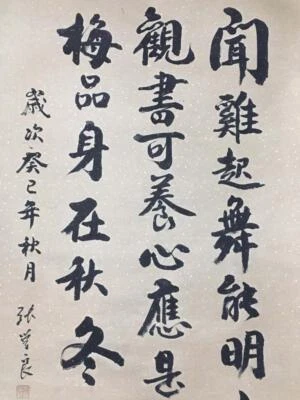 聞雞起舞能明
觀書可養心應是
梅品身在秋冬
歲次癸巳年秋月
張學良